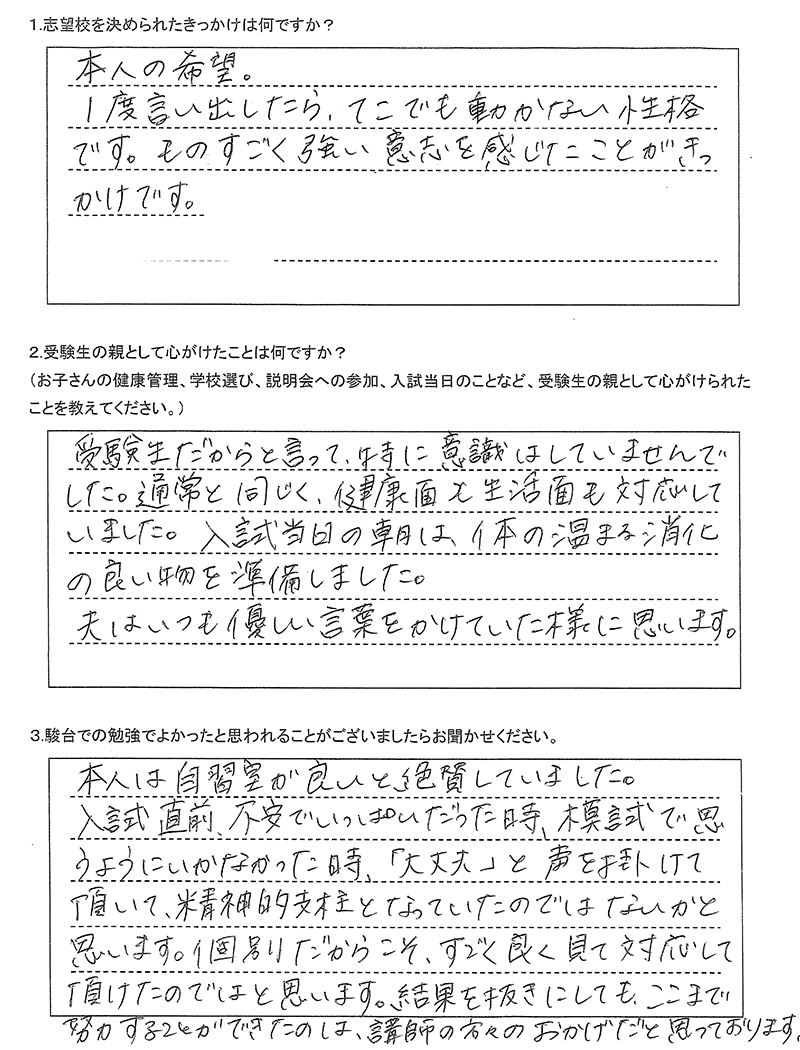 1.志望校を決められたきっかけは何ですか？
本人の希望。
1度言い出したら、てこでも動かない性格
です。ものすごく強い意志を感じたことがきっ
かけです。
2.受験生の親として心がけたことは何ですか？
（お子さんの健康管理、学校選び、説明会への参加、入試当日のことなど、受験生の親として心がけられた
ことを教えてください。）
受験生だからと言って、特に意識はしていませんで
した。通常と同じく、健康面も生活面も対応して
いました。入試当日の朝は、体の温まる消化
の良い物を準備しました。
夫はいつも優しい言葉をかけていた様に思います。
3.駿台での勉強でよかったと思われることがございましたらお聞かせください。
本人は自習室が良いと絶賛していました。
入試直前、不安でいっぱいだった時、模試で思
うようにいかなかった時、「大丈夫」と声を掛けて
頂いて、精神的支柱となっていたのではないかと
思います。個別だからこそ、すごく良く見て対応して
頂けたのではと思います。結果を抜きにしても、ここまで
努力することができたのは、講師の方々のおかげだと思っております。